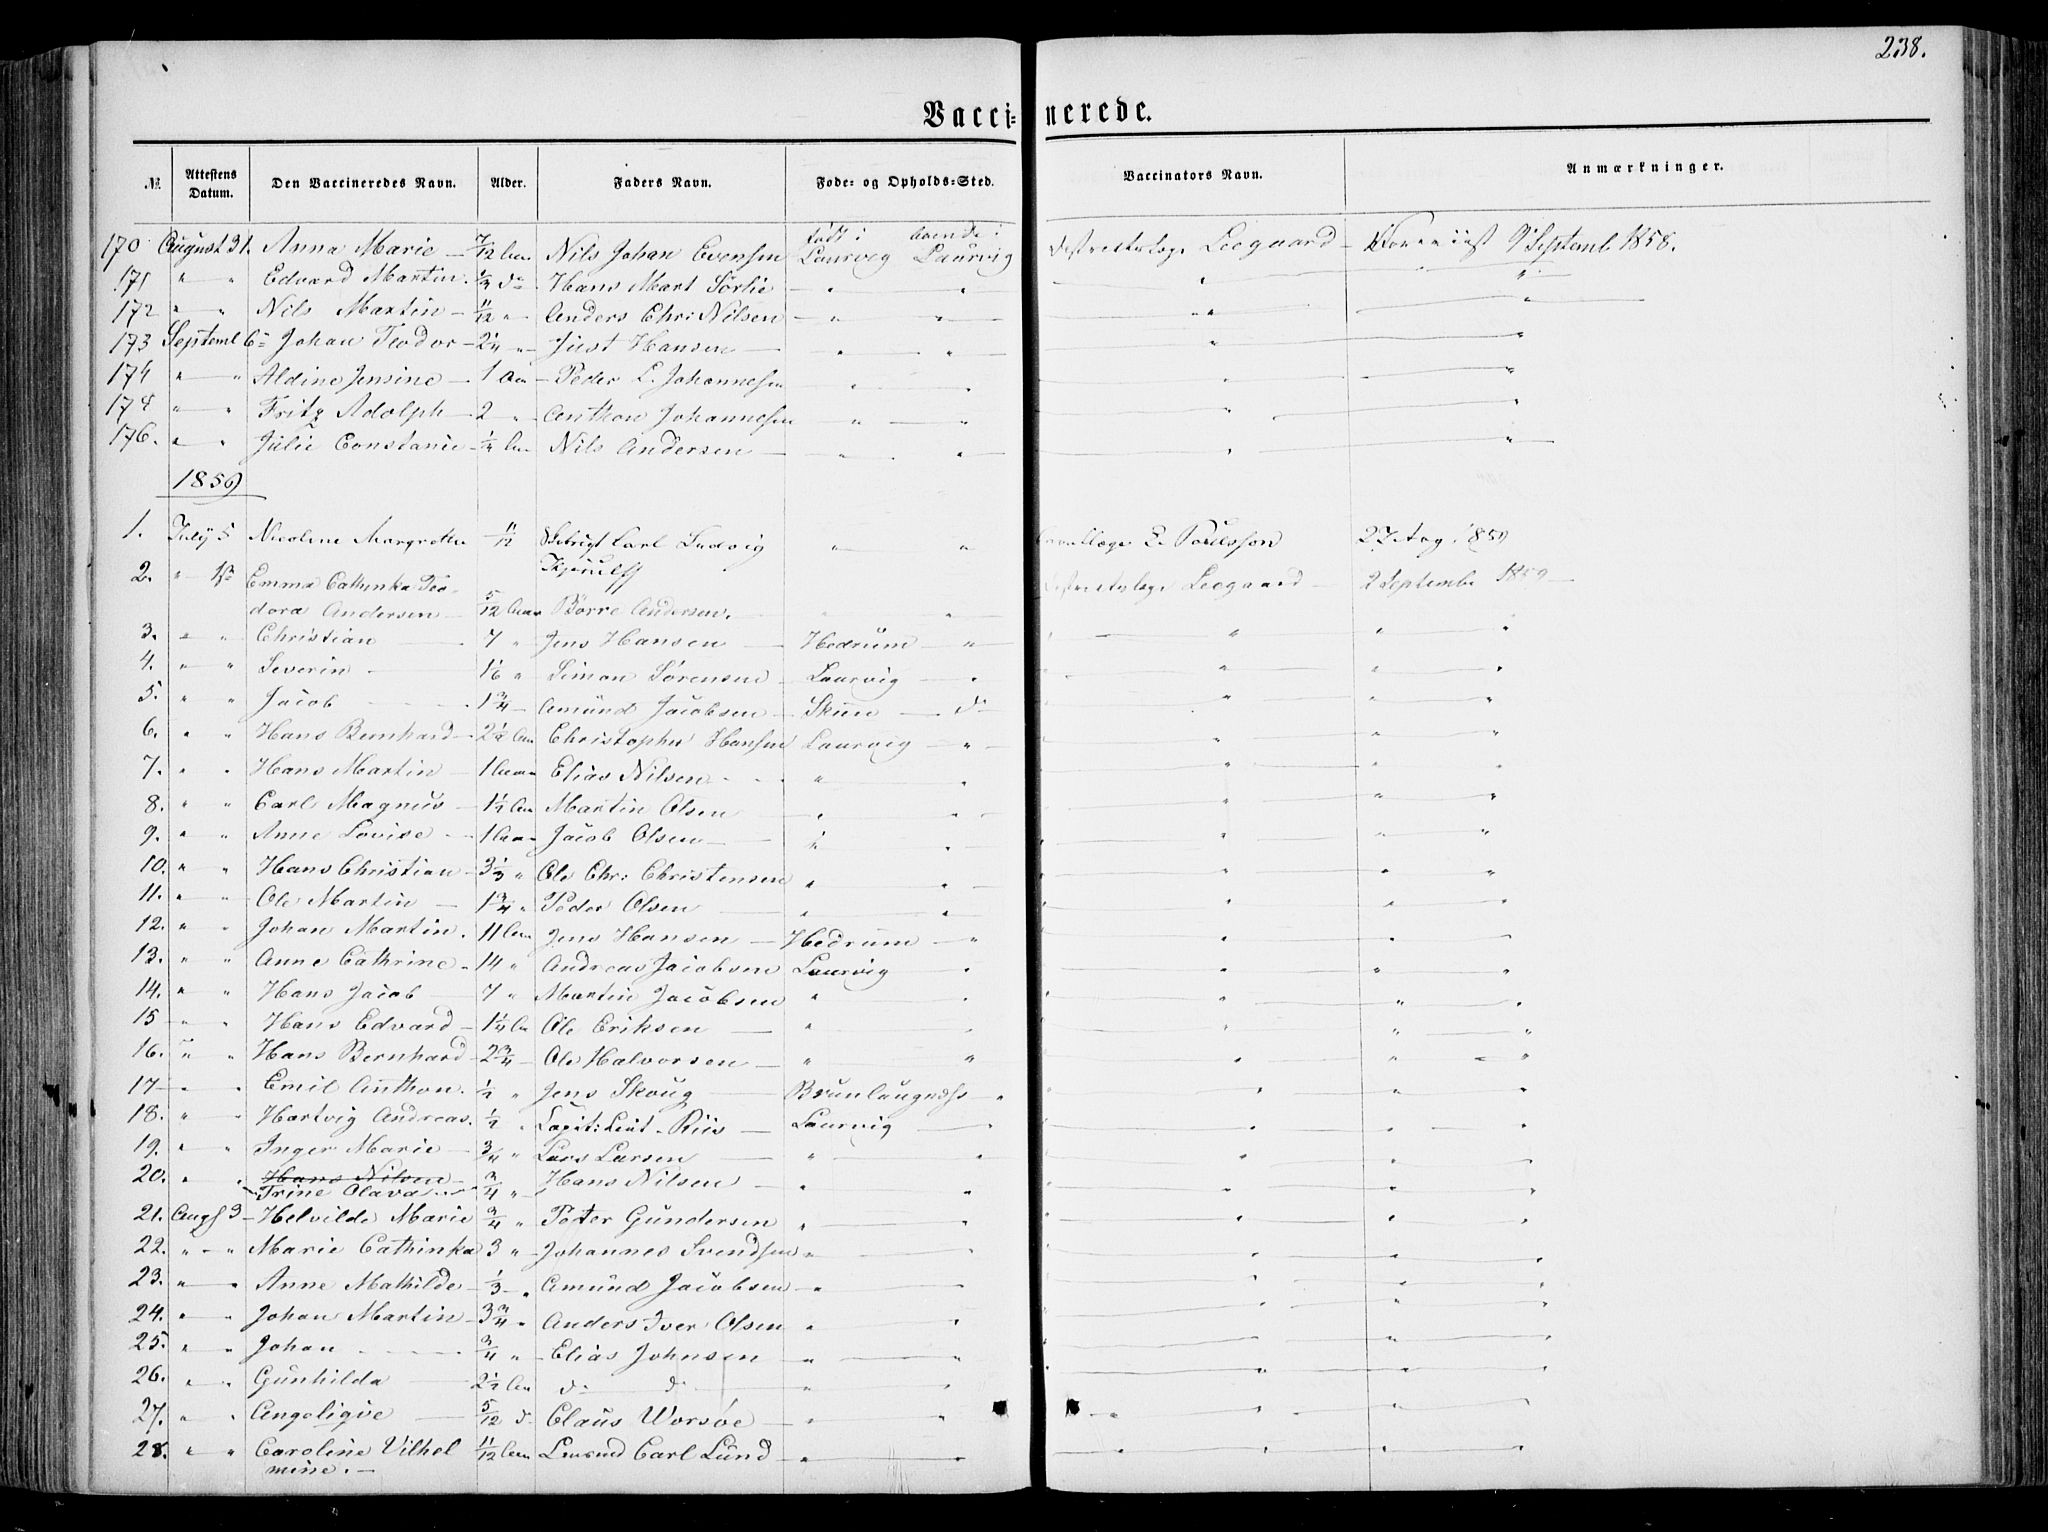 238.
Vacci- nerede.
№ Attestens Datum. Den Vaccineredes Navn. Alder. Faders Navn. Føde- og Opholds-Sted. Vaccinators Navn. Anmærkninger.
født i boende i
170 August 31. Anna Marie 7/12 Nils Johan Evensen Laurvig Laurvig Leegaard 9 Septemb 1858.
171 " " Edvard Martin Hans Mart Sørlie " "
172 " " Nils Martin 11/12 " Anders Chr: Nilsen " "
173 Septemb 6 Johan Teodor 2 1/4 " Just Hansen " "
174 " " Aldine Jensine 1 Peder L. Johannesen " "
174 " " Fritz Adolph 2 " Anthon Johannesen " "
176. " " Julie Constanie Nils Andersen " "
1859
1. July 5 Nicoline Margrethe 11/12 Carl Ludvig " " E. Poulsson 27 Aug. 1859
Kjerulff
2. " Emma Cathinka Teo- Leegaard 2 Septembr 1859
dora Andersen 5/12 Børre Andersen. " "
3. " " Christian 7 " Jens Hansen Hedrum "
4. " " Severin 1 1/6 " Simon Sørensen Laurvig "
5. " " Jacob 1 3/4 Amund Jacobsen d
6. " " Hans Bernhard Christopher Hansen Laurvig "
7. " " Hans Martin 1 Elias Nilsen " "
8. " " Carl Magnus 1 1/2 Martin Olsen " "
9. " " Anne Lovise 1 Jacob Olsen " "
10. " " Hans Christian " Ole Chr: Christensen " "
11. " " Ole Martin 1 3/4 " Peder Olsen " "
12. " " Johan Martin 11 Jens Hansen Hedrum "
13. " " Anne Cathrine 14 " Andreas Jacobsen Laurvig "
14. " " Hans Jacob 7 " Martin Jacobsen " "
15 " " Hans Edvard 1 1/4 Ole Eriksen " "
16. " " Hans Bernhard 2 3/4 Ole Halvorsen " "
17 " " Emil Anthon 1/2 " Jens Skoug Brunlaugness "
18. " " Hartvig Andreas. 1/2 " Riis Laurvig "
19. " " Inger Marie 3/4 " Lars Larsen " "
20. " " Hans Nilsen 3/4 " Hans Nilsen " "
Trine Olava
21. Augs 3 Helvilde Marie 3/4 " Peter Gundersen " "
22. " " Marie Cathinka 3 " Johannes Svendsen " "
23. " " Anne Mathilde 1/3 " Amund Jacobsen " "
24. " " Johan Martin 3 3/4 " Anders Iver Olsen " "
25. " " Johan 3/4 " Elias Johnsen " "
26. " " Gunhilda 2 1/2 d d " "
27. " " Angeliqve 5/12 d Claus Worsøe " "
28. " " Caroline Vilhel 11/12 Carl Lund " "
mine.